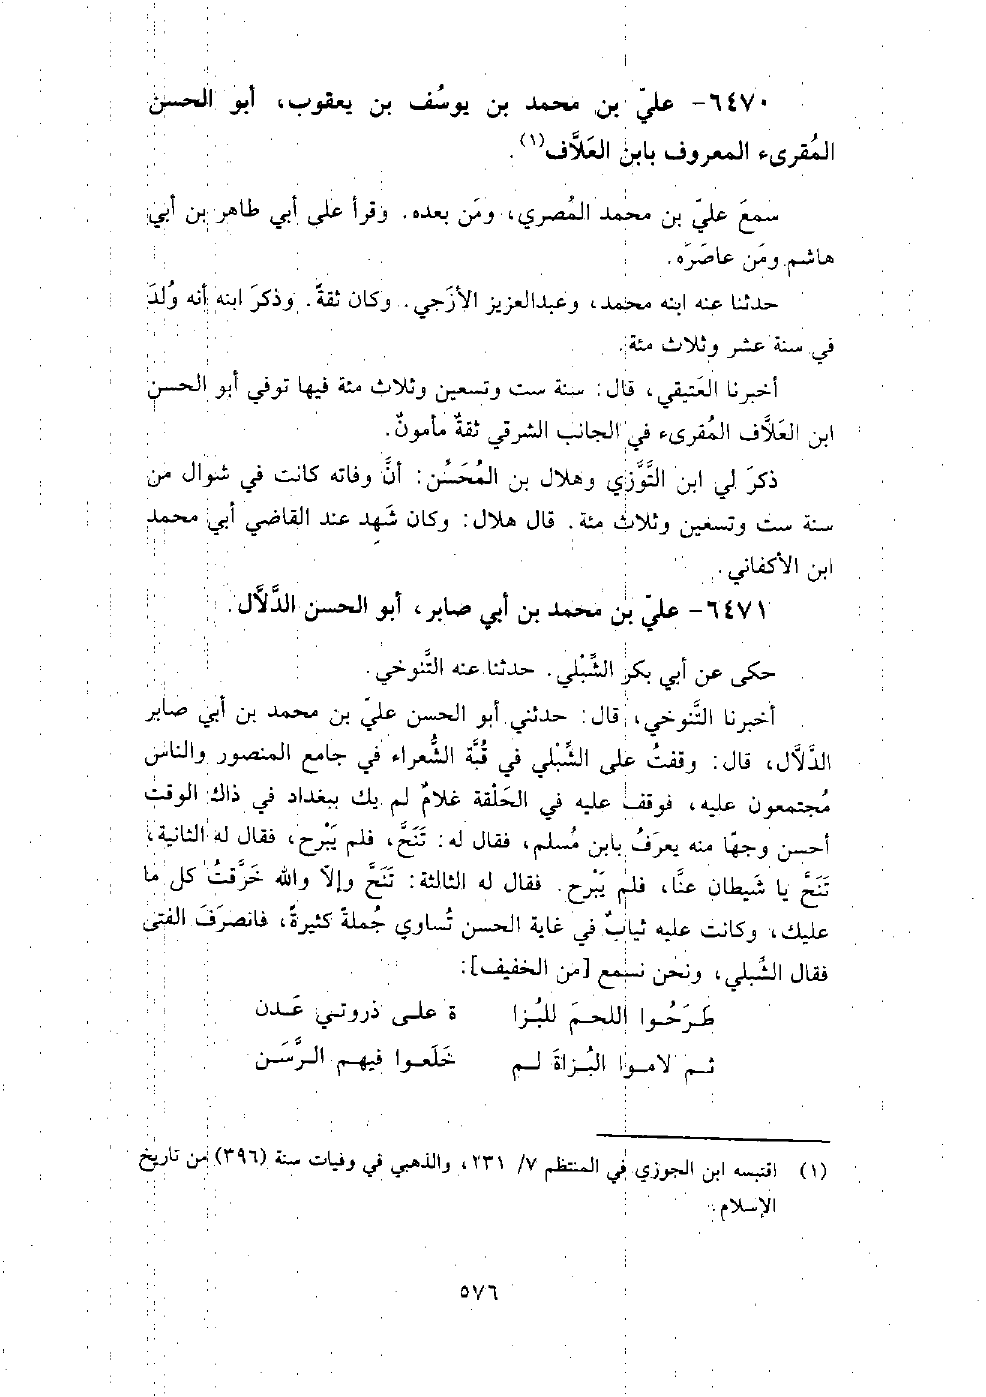 ٦٤٧٠- عليّ بن محمد بن يوسُف بن يعقوب، أبو الحسن
المُقرىء المعروف بابن العَلَّاف(١).
سمعَ عليّ بن محمد المُصري، ومَن بعده. وقرأ على أبي طاهر بن أبي
هاشم ومَن عاصَرَه.
حدثنا عنه ابنه محمد، وعبدالعزيز الأزَجي. وكان ثقةً. وذكرَ ابنه أنه وُلدَ
في سنة عشر وثلاث مئة.
أخبرنا العَتيقي، قال: سنة ست وتسعين وثلاث مئة فيها توفي أبو الحسن
ابن العَلَّاف المُقرىء في الجانب الشرقي ثقةٌ مأمونٌ.
ذكرَ لي ابن التَّوَّزي وهلال بن المُحَسِّن: أنَّ وفاته كانت في شوال من
سنة ست وتسعين وثلاث مئة. قال هلال: وكان شَهِد عند القاضي أبي محمد
ابن الأكفاني.
٦٤٧١- عليّ بن محمد بن أبي صابر، أبو الحسن الدَّلَّال.
حكى عن أبي بكر الشِّبْلي. حدثنا عنه التَّنوخي.
أخبرنا التَّنوخي، قال: حدثني أبو الحسن عليّ بن محمد بن أبي صابر
الدَّلَّال، قال: وقفتُ على الشِّبْلي في قُبَّة الشُّعراء في جامع المنصور والناس
مُجتمعون عليه، فوقف عليه في الحَلْقة غلامٌ لم يك ببغداد في ذاك الوقت
أحسن وجهًا منه يعرَفُ بابن مُسلم، فقال له: تَنَحَّ، فلم يَبْرح، فقال له الثانية،
تَنَحَّ يا شَيطان عنَّا، فلم يَبْرح. فقال له الثالثة: تَنَحَّ وإلّا والله خَرَّقتُ كل ما
عليك، وكانت عليه ثيابٌ في غاية الحسن تُساوي جُملةً كثيرةً، فانصرَفَ الفتى
فقال الشِّبلي، ونحن نسمع [من الخفيف]:
طَرَحُوا اللحمَ للبُزا ة على ذروتي عَدن
ثم لاموا البُزاةَ لم خَلَعوا فيهم الرَّسَن
(١) اقتبسه ابن الجوزي في المنتظم ٧/ ٢٣١، والذهبي في وفيات سنة (٣٩٦) من تاريخ
الإسلام.
٥٧٦